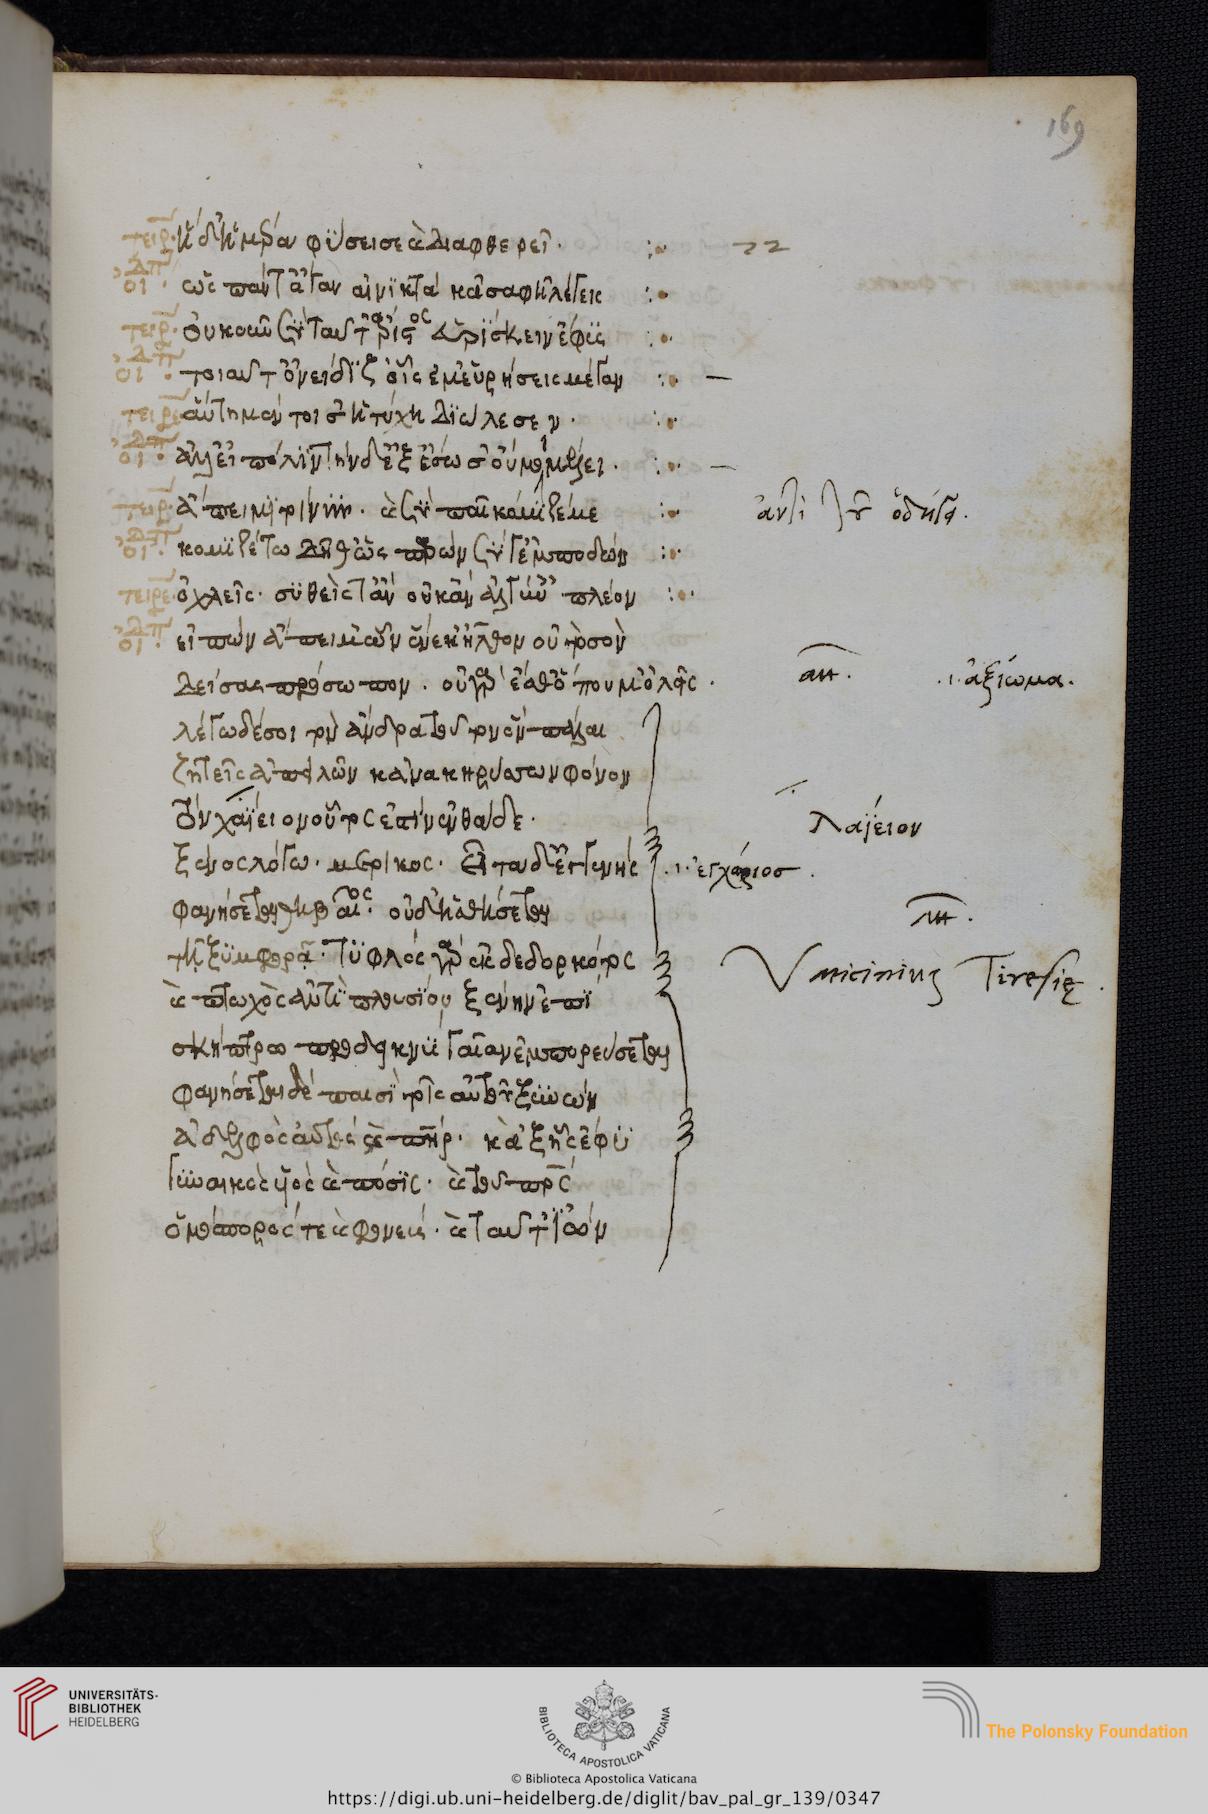 169
τειρ. ἥδ' ἡμέρα φύσει σε καὶ διαφθερεῖ.
οιδπ. ὡς πάντ' ἄγαν αἰνικτὰ κἀσαφῆ λέγεις
τειρ. οὐκοῦν σὺ ταῦτ' ἄριστος εὑρίσκειν ἔφυς
οιδπ. τοιαῦτ' ὀνείδιζ' οἷς ἔμ' εὑρήσεις μέγαν
τειρε. αὕτη μέν τοι σ' ἡ τύχη διώλεσεν.
οιδπ. ἀλλ' εἰ πόλιν τήνδ' ἐξέσωσ' οὔ μοι μέλει.
τειρ. ἄπειμι τοίνυν. καὶ σὺ παῖ κόμιζέ με
ἀντὶ τοῦ ὁδήγει.
οιδπ. κομιζέτω δῆθ' ὡς παρὼν σύ γ' ἐμποδὼν
τειρε. ὀχλεῖς. συθείς τ' ἂν οὐκ ἂν ἀλγύναις πλέον
οιδπ. εἰπὼν ἄπειμ' ὧν οὕνεκ' ἦλθον οὐ τὸ σὸν
δείσας πρόσωπον. οὐ γὰρ ἔσθ' ὅπου μ' ὀλεῖς.
ἀξίωμα.
λέγω δέ σοι τὸν ἄνδρα τοῦτον ὃν πάλαι
ζητεῖς ἀπειλῶν κἀνακηρύσσων φόνον
τὸν λαΐειον οὗτός ἐστιν ἐνθάδε.
Λαΐειον
ξένος λόγῳ μέτοικος. εἶτα δ' ἐγγενὴς
ἐγχώριος.
φανήσεται θηβαῖος. οὐδ' ἡσθήσεται
τῇ ξυμφορᾷ. τυφλὸς γὰρ ἐκ δεδορκότος
Vaticinium Tiresię.
καὶ πτωχὸς ἀντὶ πλουσίου ξένην ἐπὶ
σκήπτρῳ προδεικνὺς γαῖαν ἐμπορεύσεται
φανήσεται δὲ παισὶ τοῖς αὑτοῦ ξυνὼν
ἀδελφὸς αὑτὸς καὶ πατήρ. κἀξ ἧς ἔφυ
γυναικὸς υἱὸς καὶ πόσις. καὶ τοῦ πατρὸς
ὁμόσπορός τε καὶ φονεύς. καὶ ταῦτ' ἰὼν
UNIVERSITÄTS-
BIBLIOTHEK
HEIDELBERG
BIBLIOTECA APOSTOLICA VATICANA
The Polonsky Foundation
© Biblioteca Apostolica Vaticana
https://digi.ub.uni-heidelberg.de/diglit/bav_pal_gr_139/0347